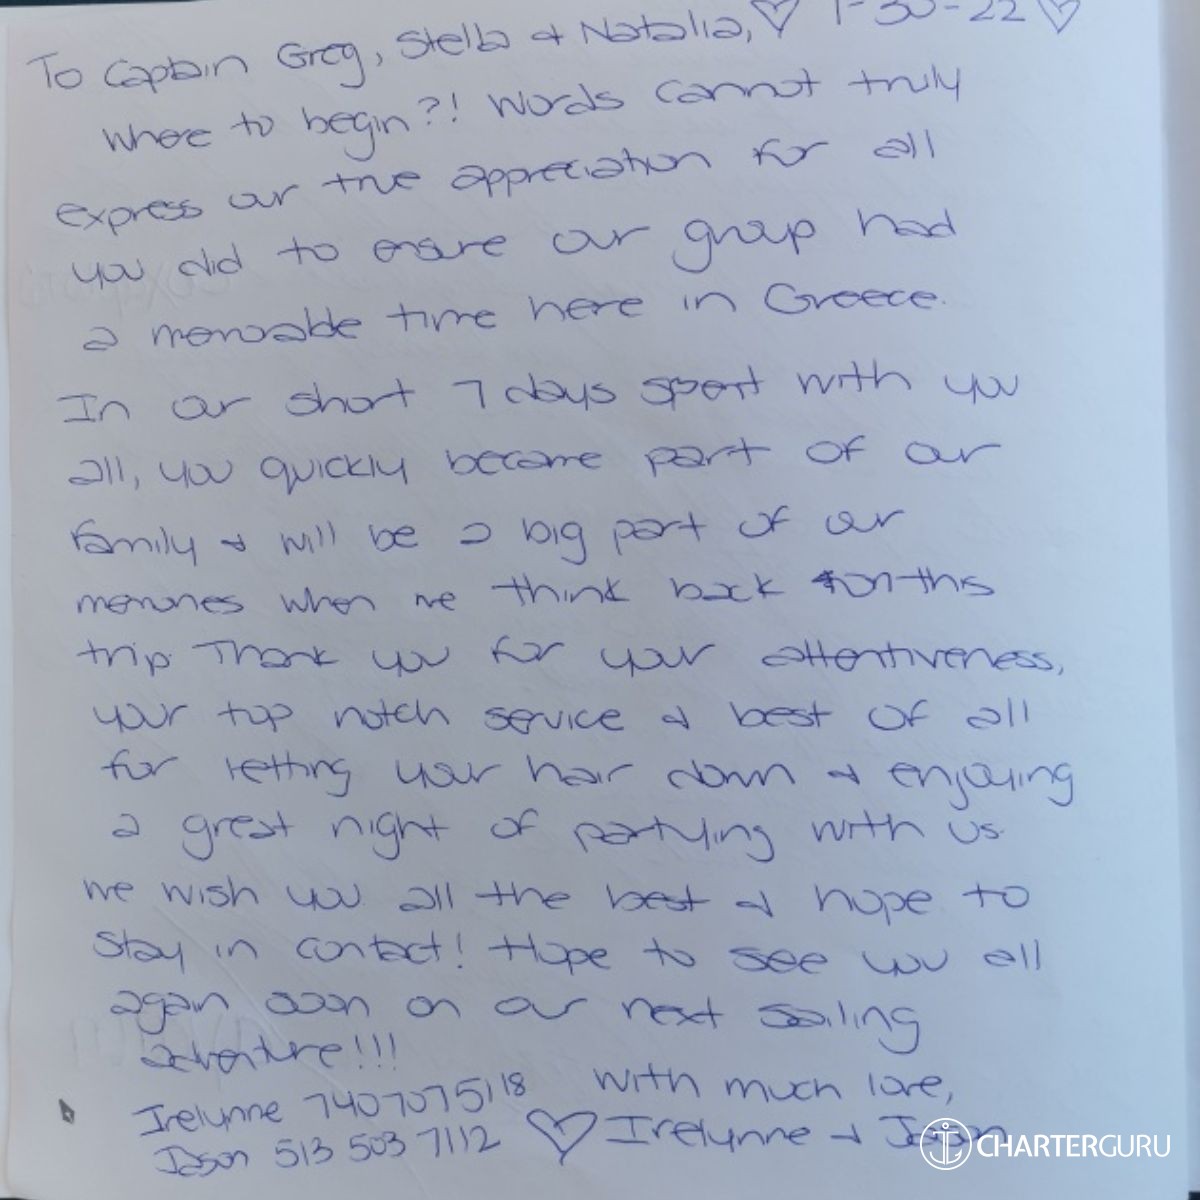 To Captain Greg, Stella & Natalia, ♡ 7-30-22 ♡
Where to begin?! Words cannot truly
express our true appreciation for all
you did to ensure our group had
a memorable time here in Greece.
In our short 7 days spent with you
all, you quickly became part of our
family & will be a big part of our
memories when we think back on this
trip. Thank you for your attentiveness,
your top notch service & best of all
for letting your hair down & enjoying
a great night of partying with us.
We wish you all the best & hope to
stay in contact! Hope to see you all
again soon on our next sailing
adventure!!!
With much love,
Irelynne 7407075118
Jason 513 503 7112 ♡ Irelynne & Jason
CHARTERGURU